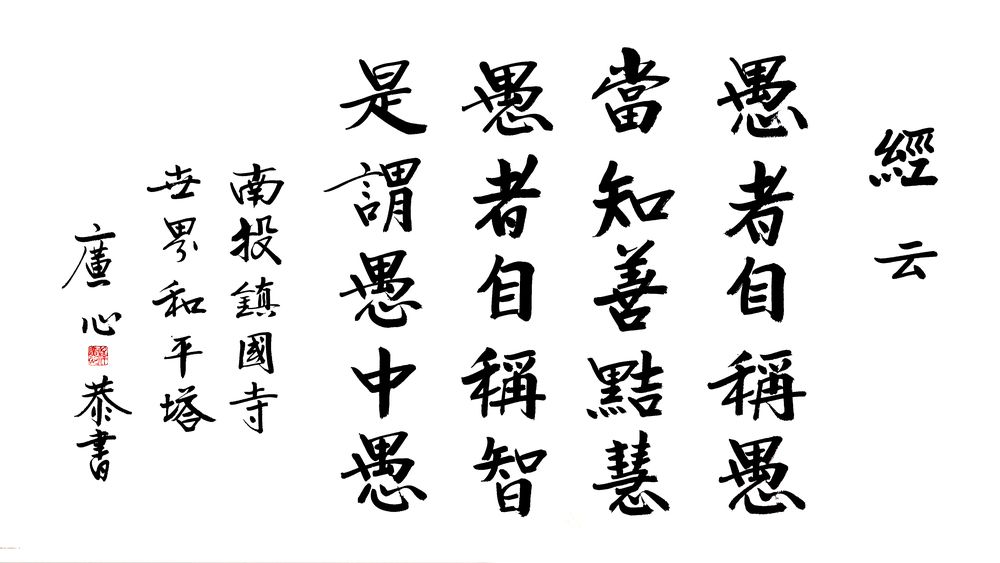 經云
愚者自稱愚
當知善黠慧
愚者自稱智
是謂愚中愚
南投鎮國寺
世界和平塔
廣心恭書